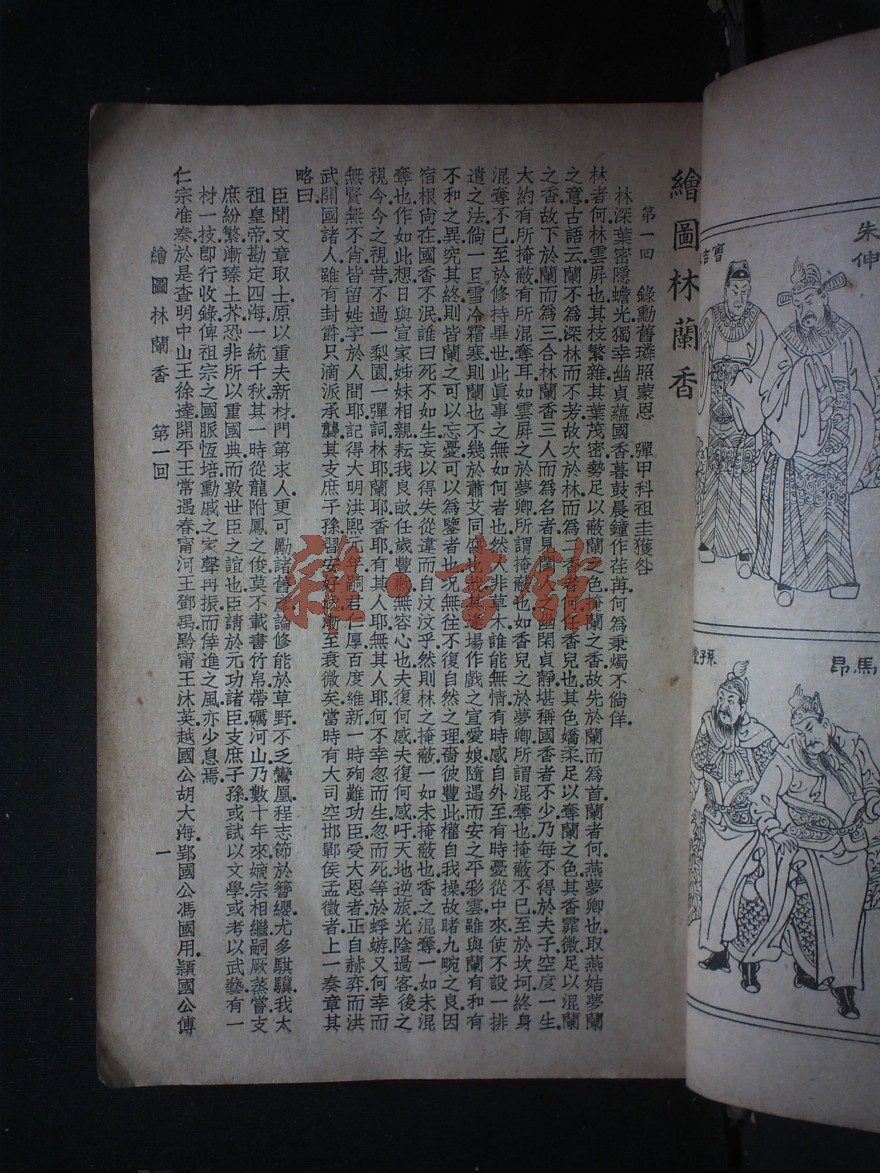 朱伸
曹吉
馬昂
孫子
繪圖林蘭香
第一回　錄勳舊璘照蒙恩　彈甲科祖圭獲咎
林深葉密隱蟾光獨幸幽貞蘊國香暮鼓晨鐘作荏苒何爲秉燭不倘佯
林者何林雲屏也其枝繁雜其葉茂密勢足以蔽蘭之色掩蘭之香故先於蘭而爲首蘭者何燕夢卿也取燕姞夢蘭
之意古語云蘭不爲深林而不芳故次於林而爲二香者何任香兒也其色嬌柔足以奪蘭之色其香霏微足以混蘭
之香故下於蘭而爲三合林蘭香三人而爲名者見閨人幽閑貞靜堪稱國香者不少乃每不得於夫子空度一生
大約有所掩蔽有所混奪耳如雲屏之於夢卿所謂掩蔽也如香兒之於夢卿所謂混奪也掩蔽不已至於坎坷終身
混奪不已至於修持畢世此眞事之無如何者也然人非草木誰能無情有時感自外至有時憂從中來使不設一排
遣之法倘一旦雪冷霜寒則蘭也不幾於蕭艾同腐也哉其場作戲之宣愛娘隨遇而安之平彩雲雖與蘭有和有
不和之異究其終則皆蘭之可以忘憂可以爲鑒者也况無往不復自然之理嗇彼豐此權自我操故睹九畹之良因
宿根尙在國香不泯誰曰死不如生妄以得失從違而自汶汶乎然則林之掩蔽一如未掩蔽也香之混奪一如未混
奪也作如此想日與宣家姊妹相親耘我良畝任歲豐歉無容心也夫復何感夫復何感吁天地逆旅光陰過客後之
視今今之視昔不過一梨園一彈詞林耶蘭耶香耶有其人耶無其人耶何不幸忽而生忽而死等於蜉蝣又何幸而
無賢無不肖皆留姓字於人間耶記得大明洪熙元年嗣君仁厚百度維新一時殉難功臣受大恩者正自赫弈而洪
武開國諸人雖有封爵只滴派承襲其支庶子孫習安好逸漸至衰微矣當時有大司空邯鄲侯孟徵者上一奏章其
略曰
臣聞文章取士原以重夫新材門第求人更可勵諸舊族論修能於草野不乏鸞凰程志節於簪纓尤多騏驥我太
祖皇帝勘定四海一統千秋其一時從龍附鳳之俊莫不載書竹帛帶礪河山乃數十年來嫡宗相繼嗣厥蒸嘗支
庶紛繁漸臻土芥恐非所以重國典而敦世臣之誼也臣請於元功諸臣支庶子孫或試以文學或考以武藝有一
材一技卽行收錄俾祖宗之國脈恆培勳戚之家聲再振而倖進之風亦少息焉
仁宗准奏於是查明中山王徐達開平王常遇春甯河王鄧禹黔甯王沐英越國公胡大海郢國公馮國用潁國公傅
繪圖林蘭香　第一回
一
雜·書館